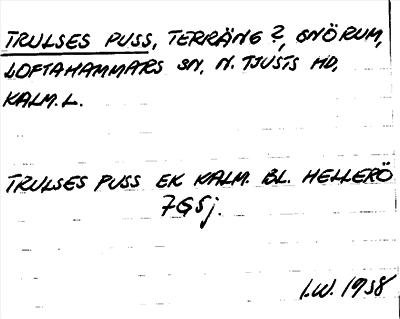 TRULSES PUSS, TERRÄNG?, GNÖRUM,
LOFTAHAMMARS SN, N. TJUSTS HD,
KALM. L.
TRULSES PUSS EK KALM. BL. HELLERÖ
7G5j.
I.W. 1958